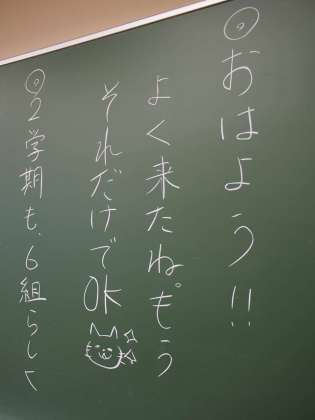 ◎おはよう!!
よく来たね。もう
それだけでOK
◎2学期も、6組らしく